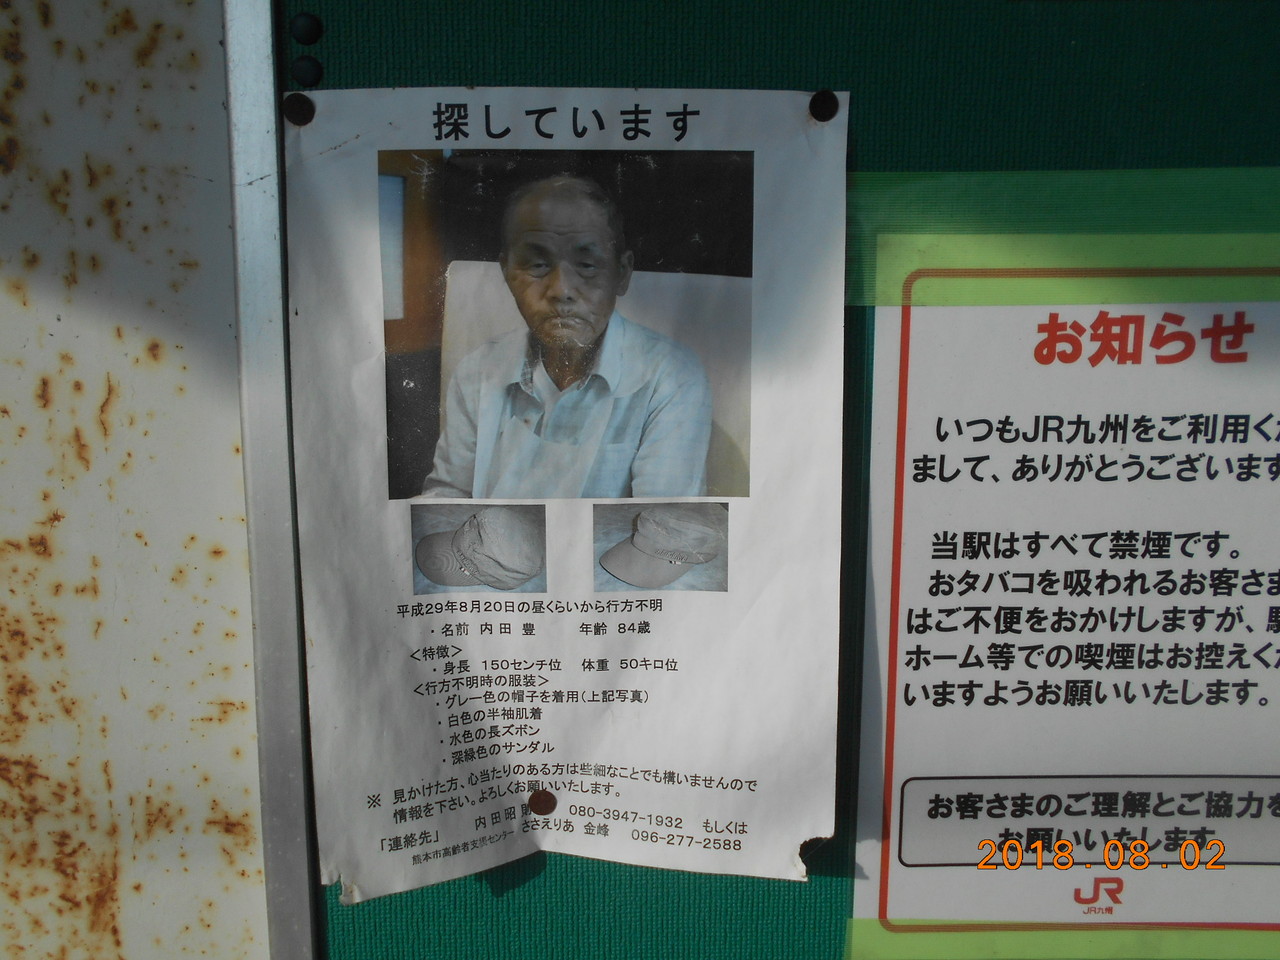 探しています
平成29年8月20日の昼くらいから行方不明
・名前 内田 豊 年齢 84歳
＜特徴＞
・身長 150センチ位 体重 50キロ位
＜行方不明時の服装＞
・グレー色の帽子を着用(上記写真)
・白色の半袖肌着
・水色の長ズボン
・深緑色のサンダル
※ 見かけた方、心当たりのある方は些細なことでも構いませんので
情報を下さい。よろしくお願いいたします。
「連絡先」 内田昭 080-3947-1932 もしくは
熊本市高齢者支援センター ささえりあ 金峰 096-277-2588
お知らせ
いつもJR九州をご利用く
まして、ありがとうございます
当駅はすべて禁煙です。
おタバコを吸われるお客さま
はご不便をおかけしますが、
ホーム等での喫煙はお控えく
いますようお願いいたします。
お客さまのご理解とご協力を
お願いいたします
2018.08.02
JR
JR九州